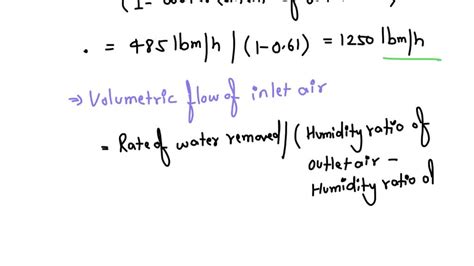 . = 485 lbm/h / (1-0.61) = 1250 lbm/h
⇒ Volumetric flow of inlet air
= Rate of water removed / ( Humidity ratio of
outlet air -
Humidity ratio of